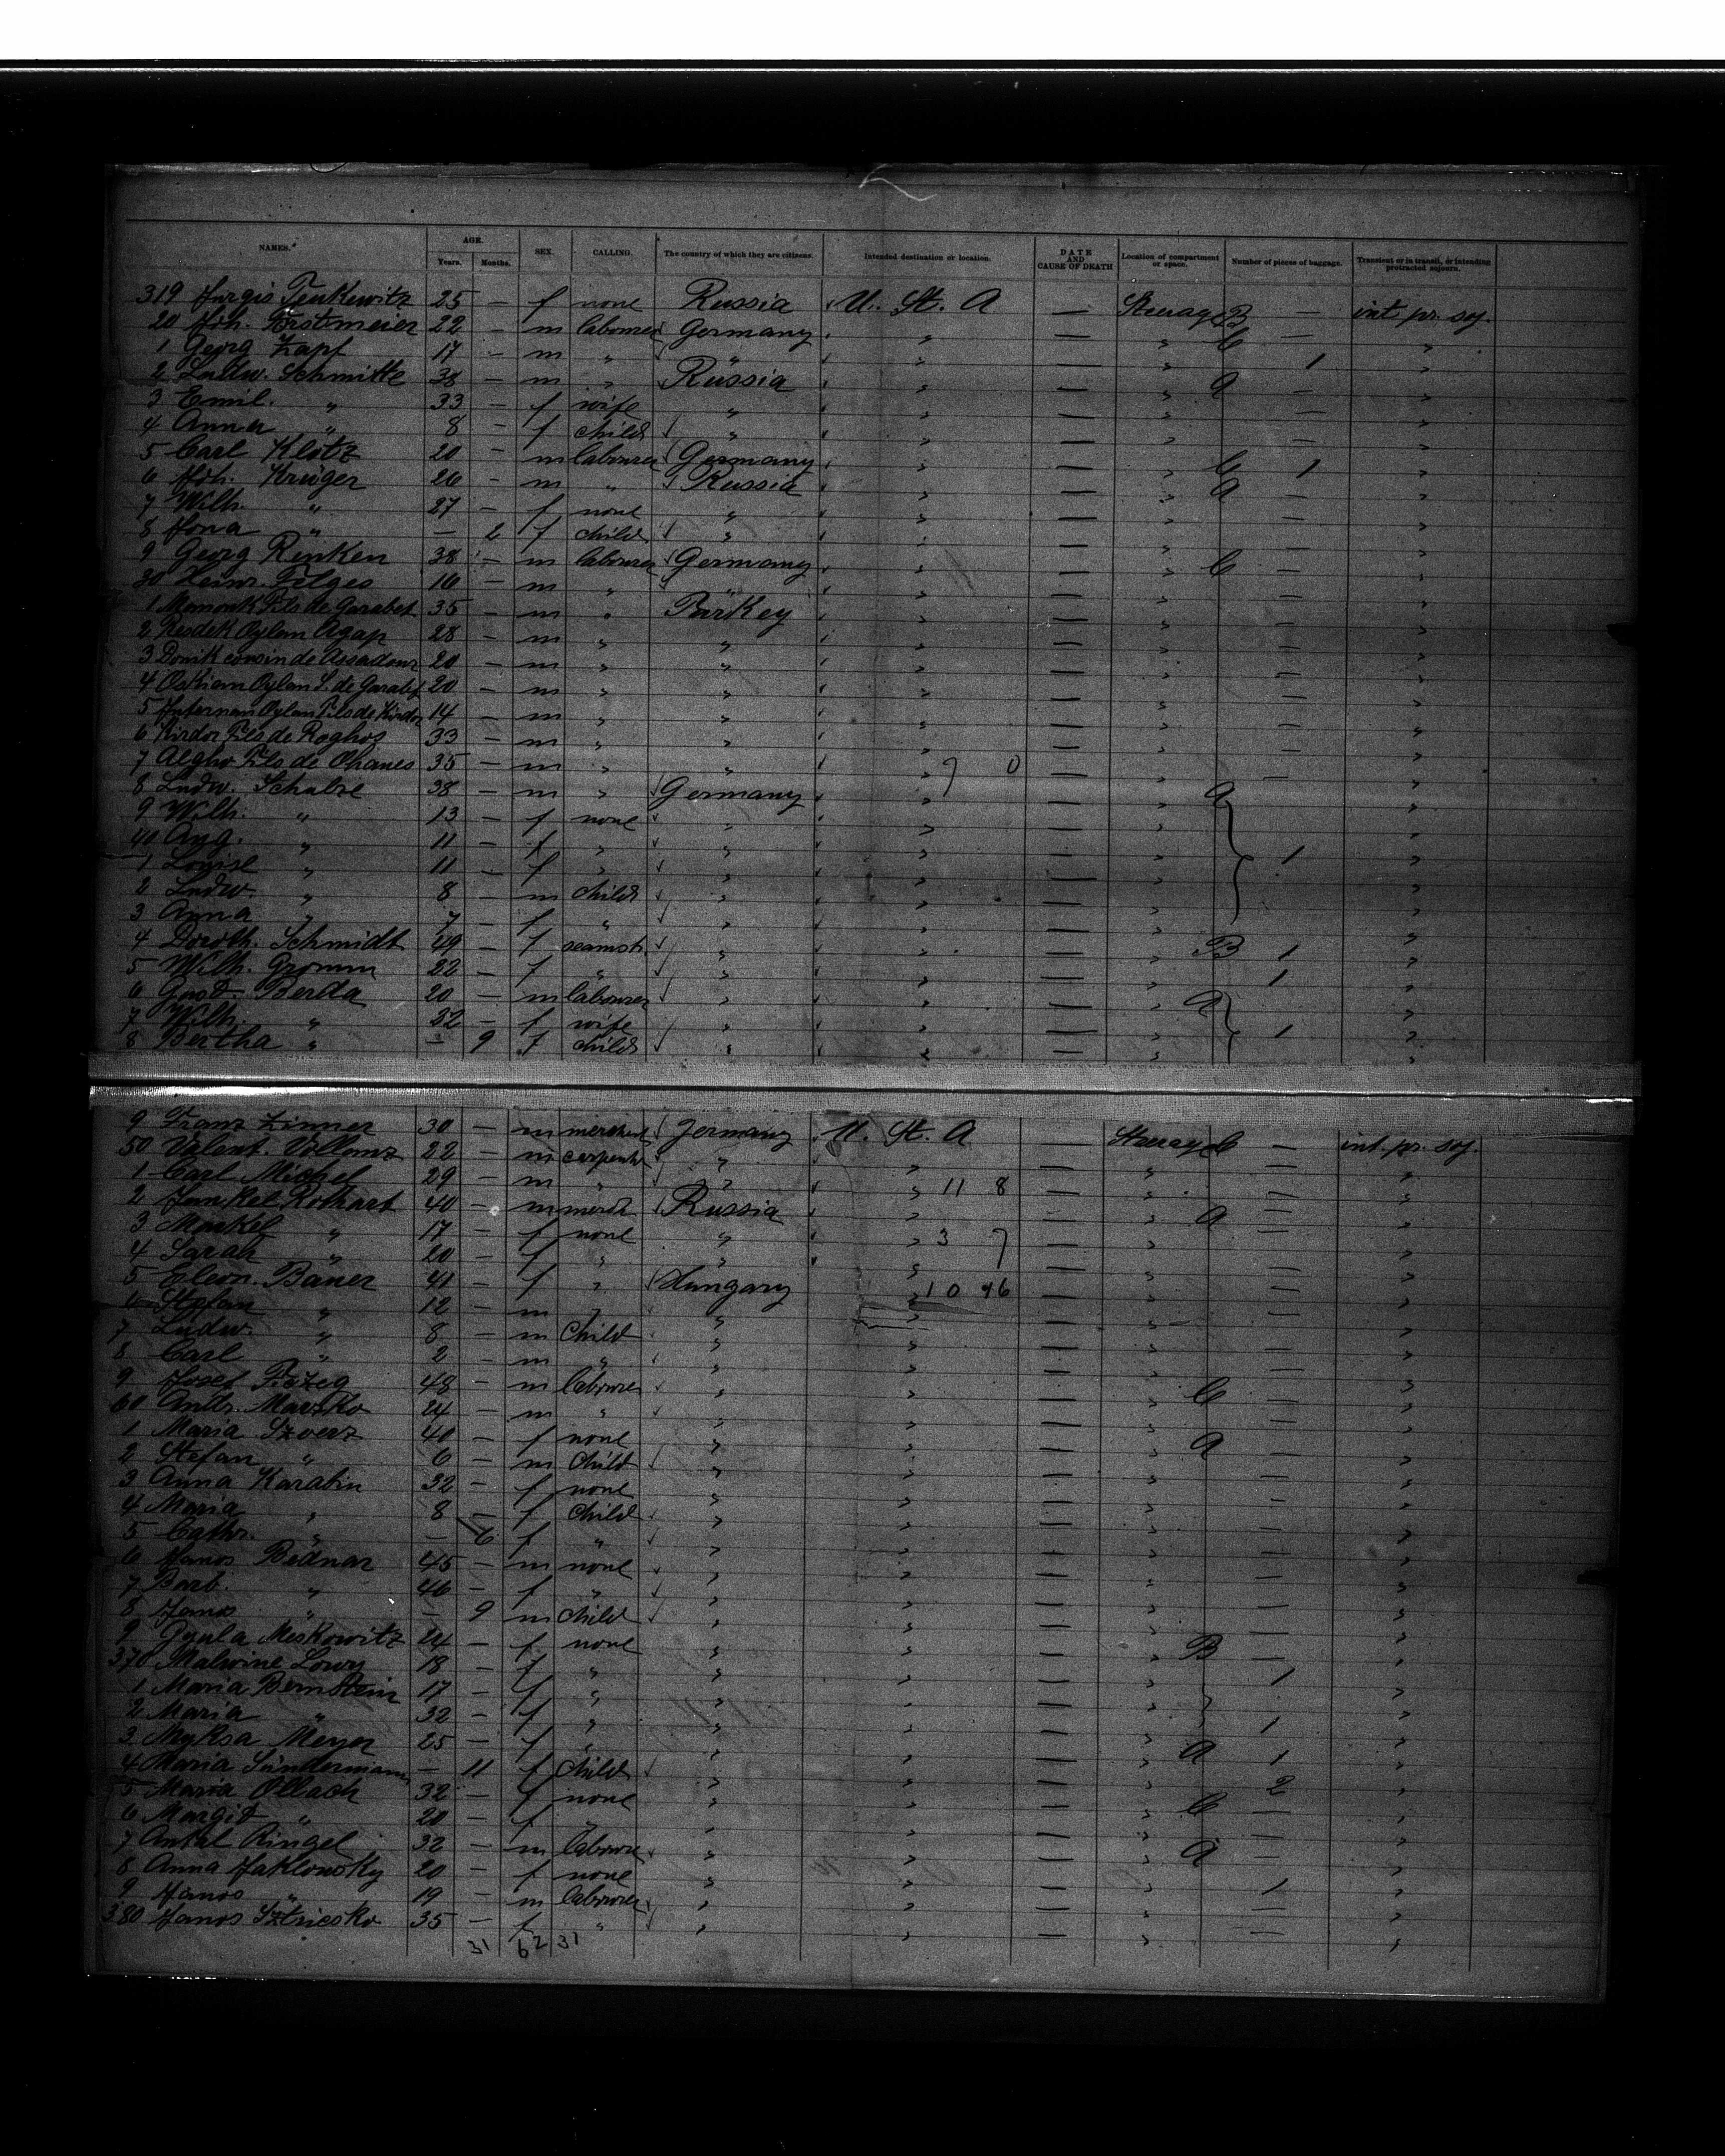 NAMES. AGE. SEX. CALLING. The country of which they are citizens. Intended destination or location. DATE AND CAUSE OF DEATH Location of compartment or space. Number of pieces of baggage. Transient or in transit, or intending protracted sojourn.
Years. Months.
319 Jurgis Tenkewitz 25 — f none Russia U. St. A — Steerage B — int pr. soj.
20 Joh. Forstmeier 22 — m labourer Germany " — " C — "
1 Georg Zapf 17 — m " " " — " 1 "
2 Ludw. Schmitte 38 — m " Russia " — " a — "
3 Emil. " 33 — f wife " " — " — "
4 Anna " 8 — f child " " — " — "
5 Carl Klotz 20 — m labourer Germany " — " C 1 "
6 Joh. Krüger 26 — m " Russia " — " a — "
7 Wilh. " 27 — f none " " — " — "
8 " — 2 f child " " — " — "
9 Georg Rinken 38 — m labourer Germany " — " C — "
30 Heinr. Filges 16 — m " " " — " — "
1 Mamonk Fils de Garabet 35 — m " " — " — "
2 Resdek Oylan Agap 28 — m " " " — " — "
3 Donik cousin de Assadour 20 — m " " " — " — "
4 Oskian Oylan S. de Garabet 20 — m " " " — " — "
5 Oylan Fils de Kirdor 14 — m " " " — " — "
6 Kirdor Fils de Roghos 33 — m " " " — " — "
7 Algho Fils de Ohanes 35 — m " " " 7 0 — " — "
8 Ludw. Schulze 38 — m " Germany " — " a "
9 Wilh. " 13 — f none " " — " "
40 Aug. " 11 — f " " " — " 1 "
1 Louise " 11 — f " " " — " "
2 Ludw " 8 — m child " " — " "
3 Anna " 7 — f " " " — " "
4 Doroth. Schmidt 49 — f seamstr. " " — " B 1 "
5 Wilh. Gromm 22 — f " " " — " 1 "
6 Gust. Berda 20 — m labourer " " — " a "
7 Wilh. " 22 — f wife " " — " 1 "
8 Bertha " — 9 f child " " — " "
9 Franz Zinner 30 — m merchant Germany U. St. A — Steerage C — int. pr. soj.
50 Valent. Vollanz 22 — m carpenter " " — " — "
1 Carl Michel 29 — m " " " 11 8 — " — "
2 Jankel Rothart 40 — m merch. Russia " — " a — "
3 Markel " 17 — f none " " 3 7 — " "
4 Sarah " 20 — f " " " — " — "
5 Eleon. Bauer 41 — f " Hungary " 10 46 — " — "
6 Stefan " 12 — m " " " — " — "
7 Ludw. " 8 — m child " " — " — "
8 Carl " 2 — m " " " — " — "
9 Josef 48 — m labourer " " — " C — "
60 Andr. Marsko 24 — m " " " — " — "
1 Maria Szverz 40 — f none " " — " a — "
2 Stefan " 6 — m child " " — " — "
3 Anna Karabin 32 — f none " " — " — "
4 Maria " 8 — f child " " — " — "
5 Cathr. " — 6 f " " " — " — "
6 Janos Bednar 45 — m none " " — " — "
7 Barb. " 46 — f " " " — " — "
8 Janos " — 9 m child " " — " — "
9 Gyula Meskowitz 24 — f none " " — " B — "
370 Malwine Lowy 18 — f " " " — " 1 "
1 Maria Bernstein 17 — f " " " — " "
2 Maria " 32 — f " " " — " 1 "
3 Myksa Meyer 25 — f " " " — " a 1 "
4 Maria Sündermann — 11 f child " " — " 2 "
5 Maria Ollach 32 — f none " " — " C — "
6 Margit " 20 — f " " " — " — "
7 Antal Ringel 32 — m labourer " " — " a — "
8 Anna Jaklowsky 20 — f none " " — " 1 "
9 Janos " 19 — m labourer " " — " — "
380 Janos Sztricsko 35 — f " " " — " — "
31 62 31